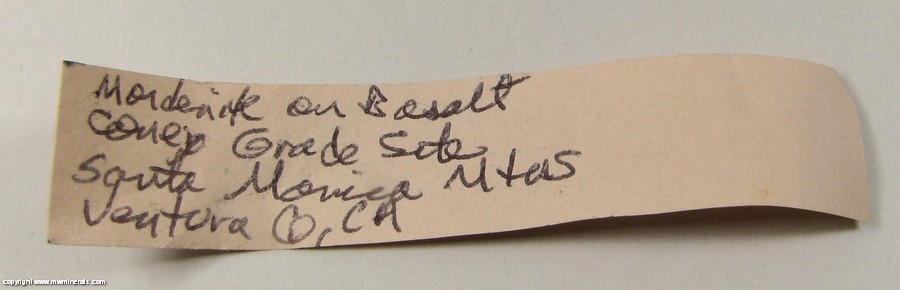 Mordenite on Basalt
Conejo Grade Site
Santa Monica Mtns
Ventura Co, CA
copyright www.mwminerals.com